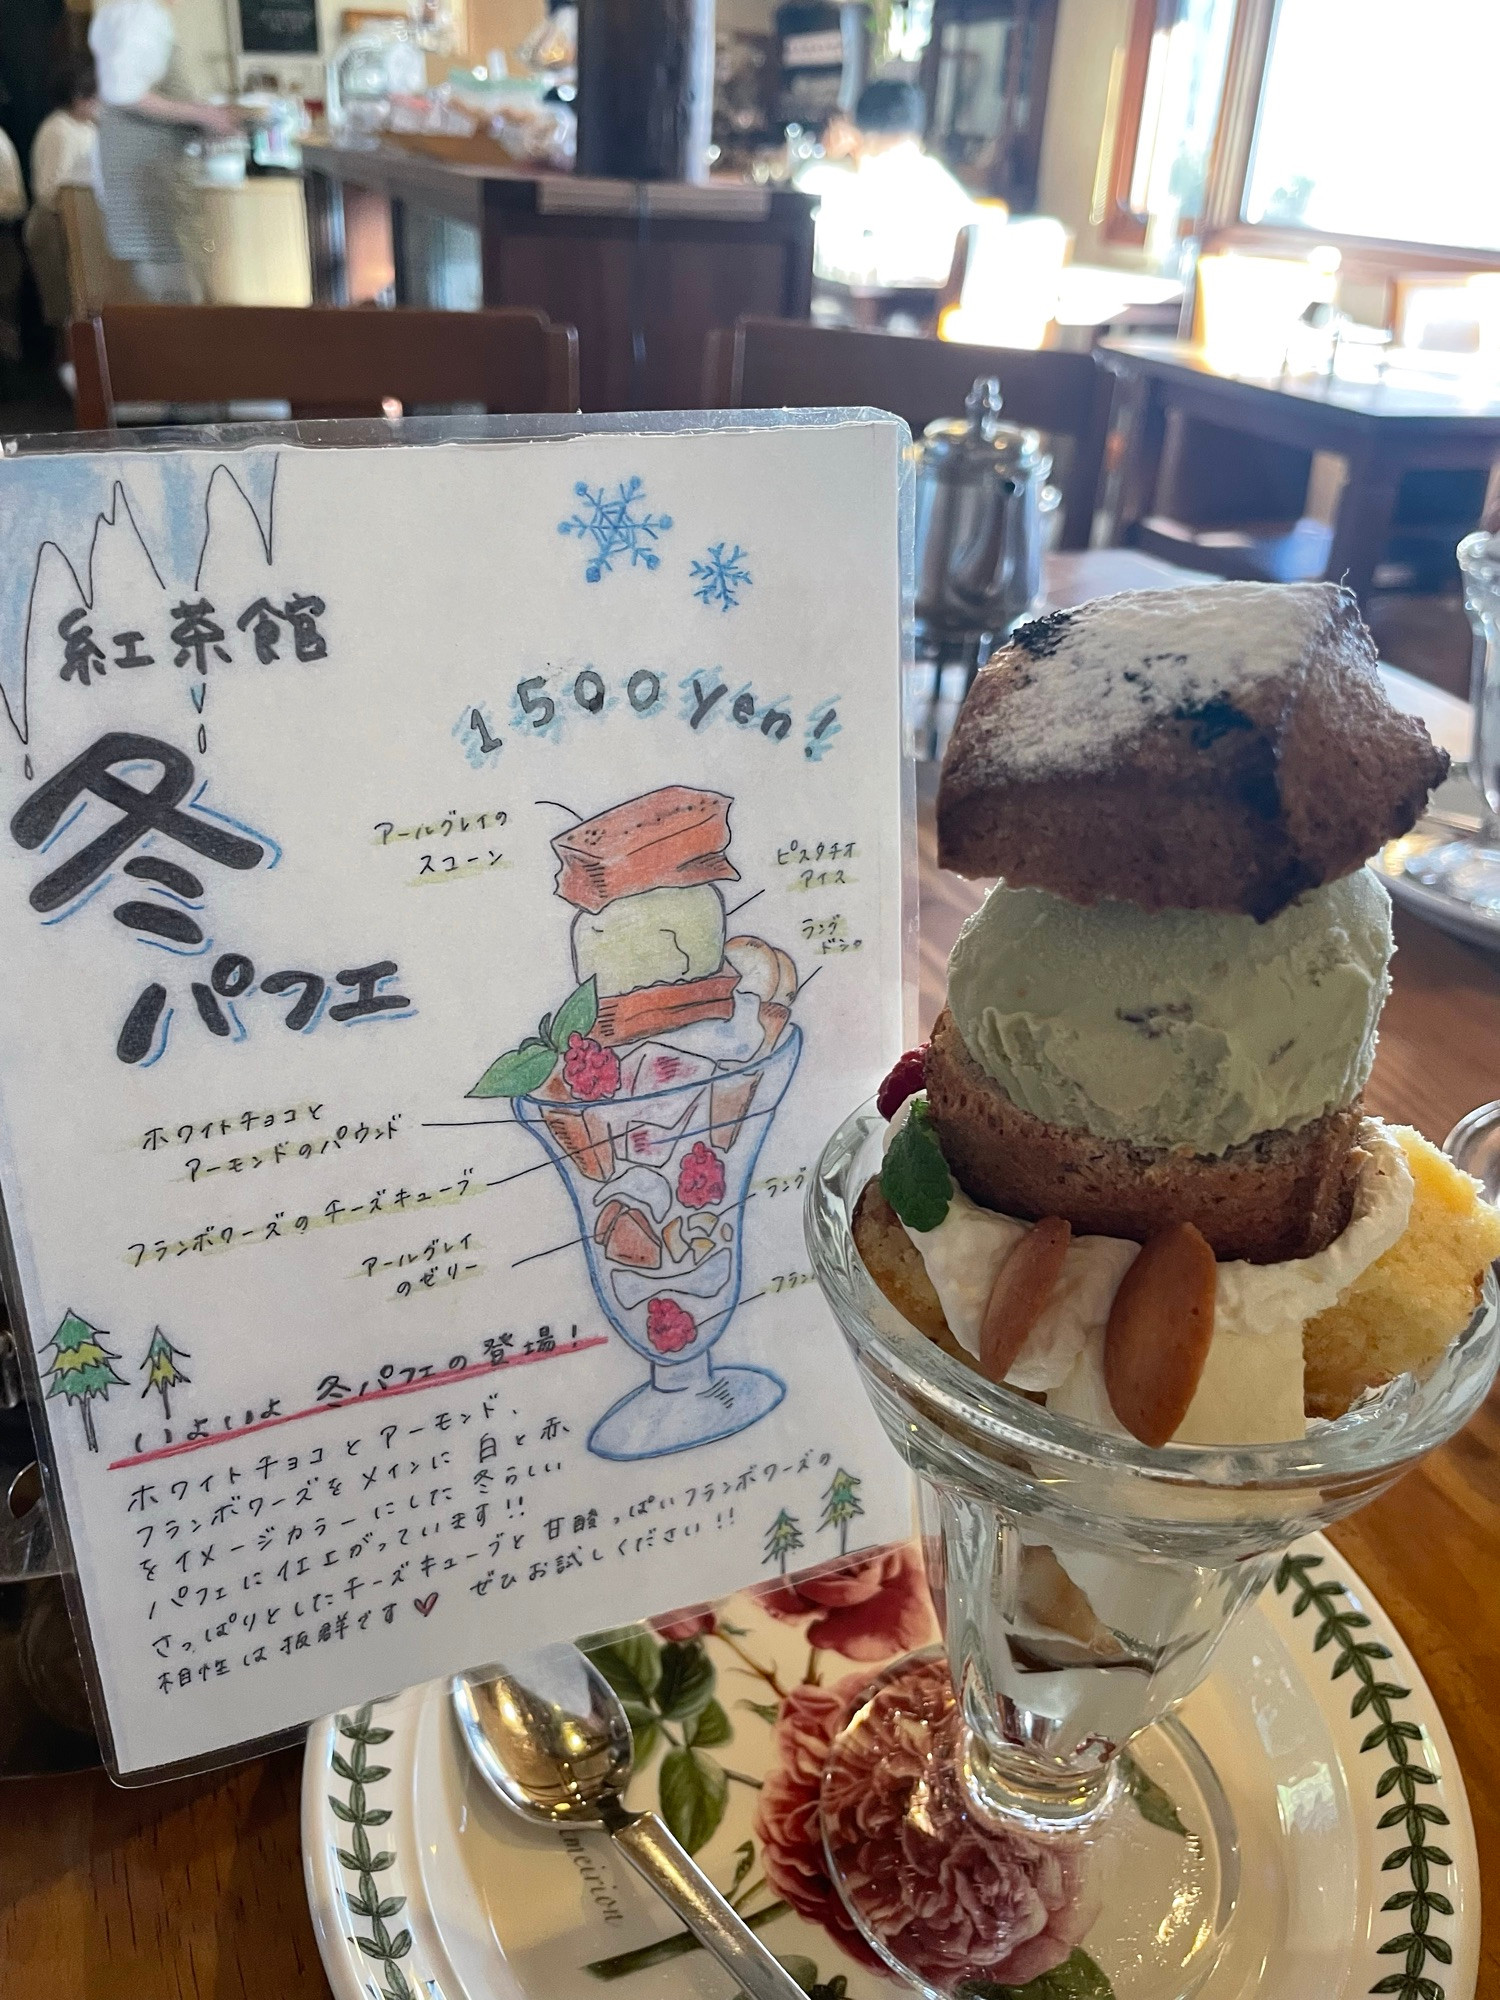 紅茶館
冬
パフェ
1500yen!
アールグレイの
スコーン
ピスタチオ
アイス
ラング
ドシャ
ホワイトチョコと
アーモンドのパウンド
フランボワーズのチーズキューブ
アールグレイ
のゼリー
ラング
フラン
いよいよ 冬パフェの登場!
ホワイトチョコとアーモンド、
フランボワーズをメインに白と赤
をイメージカラーにした冬らしい
パフェに仕上がっています!!
さっぱりとしたチーズキューブと甘酸っぱいフランボワーズの
相性は抜群です♡ ぜひお試しください!!
meirion